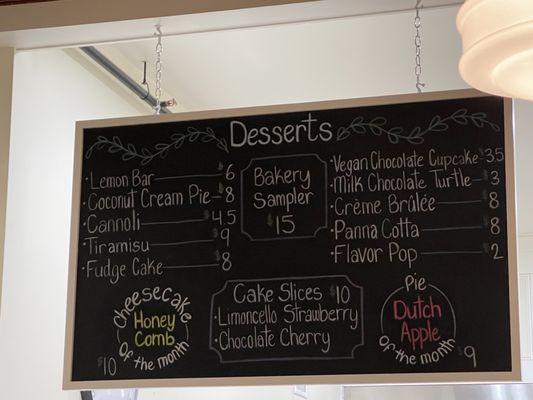 Desserts
Lemon Bar 6
Coconut Cream Pie 8
Cannoli 4.5
Tiramisu 9
Fudge Cake 8
Bakery
Sampler
$15
Vegan Chocolate Cupcake 3.5
Milk Chocolate Turtle 3
Crème Brûlée 8
Panna Cotta 8
Flavor Pop 2
Cheesecake
Honey
Comb
of the month
$10
Cake Slices $10
Limoncello Strawberry
Chocolate Cherry
Pie
Dutch
Apple
of the month
$9